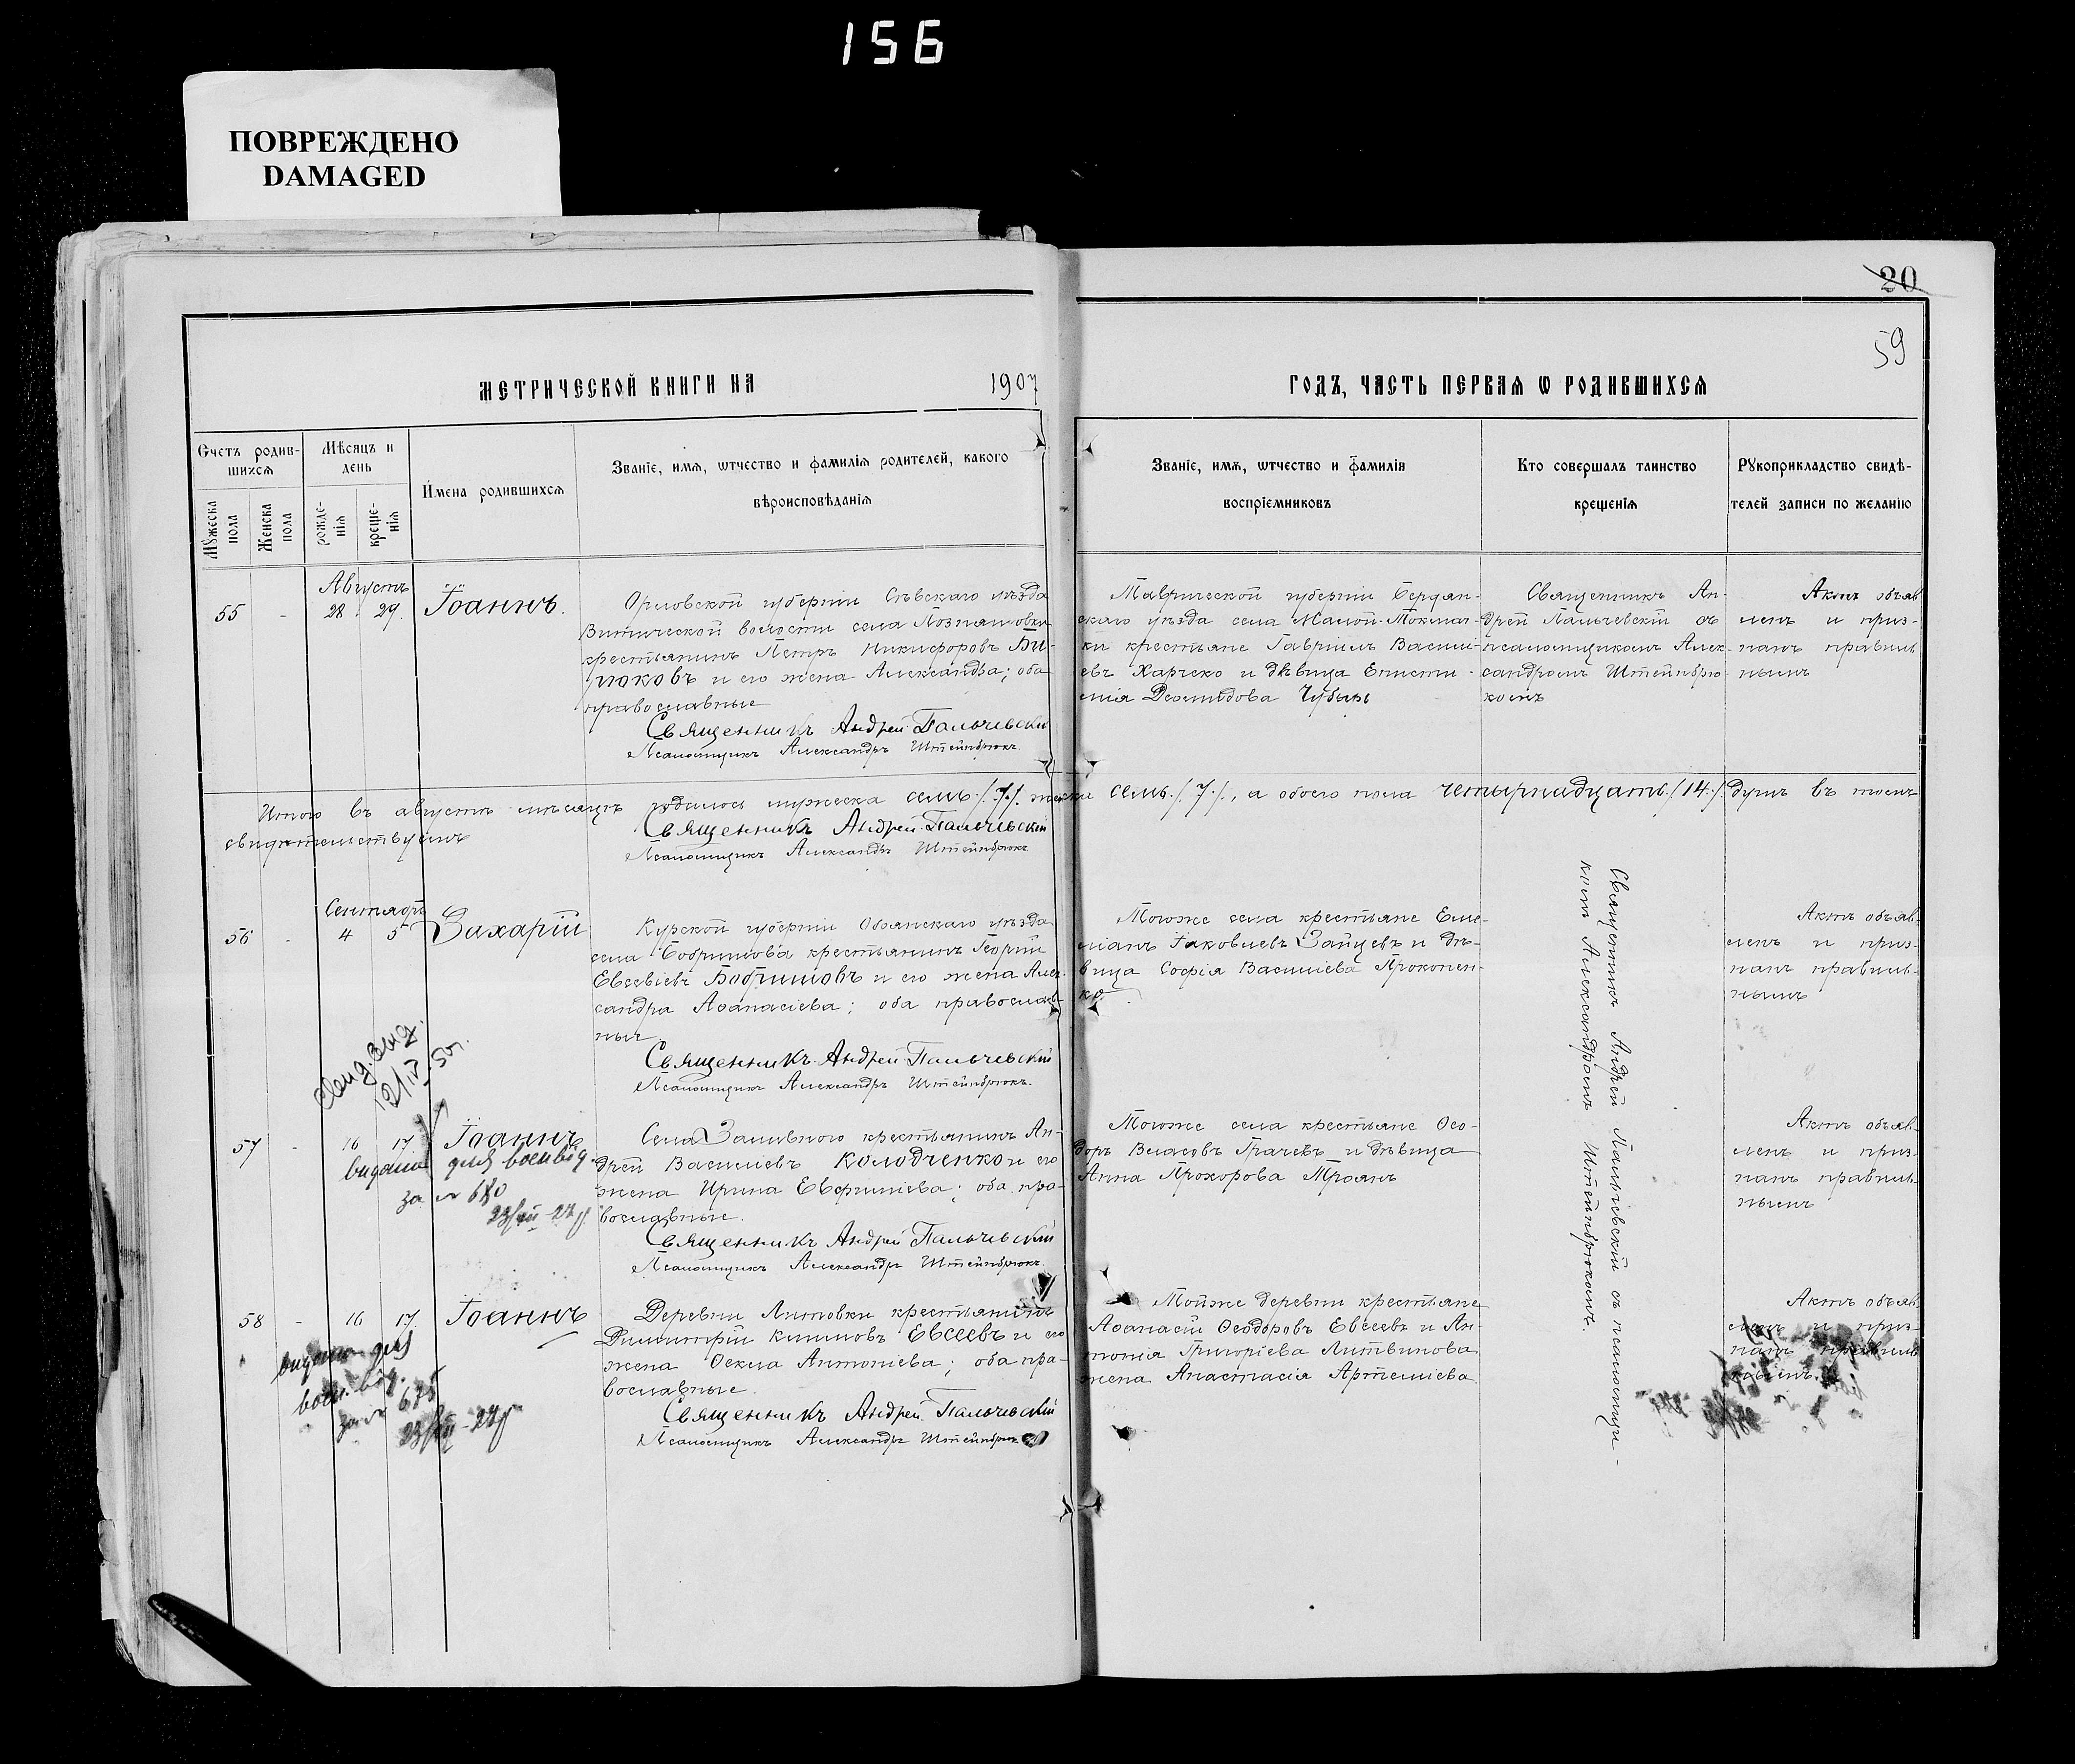 156
ПОВРЕЖДЕНО
DAMAGED
20
59
МЕТРИЧЕСКОЙ КНИГИ НА 1907 ГОДЪ, ЧАСТЬ ПЕРВАЯ Ѡ РОДИВШИХСЯ
Счетъ родив-
шихся
Мѣсяцъ и
день
Мужеска
пола
Женска
пола
рожде-
нія
креще-
нія
Имена родившихся
Званіе, имя, ѡтчество и фамилія родителей, какого
вѣроисповѣданія
Званіе, имя, ѡтчество и фамилія
воспріемниковъ
Кто совершалъ таинство
крещенія
Рукоприкладство свидѣ-
телей записи по желанію
Августъ
55 - 28 29. Іоаннъ.
Орловской губерніи Сѣвскаго уѣзда
волости села
крестьянинъ Петръ Никифоровъ Би-
рюковъ и его жена Александра; оба
православные
Священникъ Андрей Пальчевскій
Псаломщикъ Александръ Штейнбрюкъ.
Таврической губерніи Бердян-
скаго уѣзда села Малой-Токмач-
ки крестьяне Гавріилъ Василі-
евъ Харченко и дѣвица Еписти-
мія Діомидова
Священникъ Ан-
дрей Пальчевскій съ
псаломщикомъ Алек-
сандромъ Штейнбрю-
комъ
Актъ объяв
ленъ и приз-
нанъ правиль
нымъ
Итого въ августѣ мѣсяцѣ родилось мужеска семь ./.7./. женска семь ./.7./., а обоего пола четырнадцать ./.14./. душъ въ томъ
свидѣтельствуемъ
Священникъ Андрей Пальчевскій
Псаломщикъ Александръ Штейнбрюкъ
Сентябрь
56 - 4 5 Захарій
Курской губерніи Обоянскаго уѣзда
села Бобрышова крестьянинъ Георгій
Евсевіевъ Бобрышовъ и его жена Алек-
сандра Аѳанасіева; оба православ-
ные
Священникъ Андрей Пальчевскій
Псаломщикъ Александръ Штейнбрюкъ.
Тогоже села крестьяне Еме-
ліанъ Іаковлевъ Зайцевъ и дѣ-
вица Софія Василіева Прокопен-
ко.
Священникъ Андрей Пальчевскій съ псаломщи-
комъ Александромъ Штейнбрюкомъ.
Актъ объяв-
ленъ и приз-
нанъ правиль-
нымъ
12/IV.50г.
57 - 16 17 Іоаннъ
видано для
за № 680
23/XII-27р.
Села Заливного крестьянинъ Ан-
дрей Василіевъ Колодченко и его
жена Ирина Евфиміева; оба пра-
вославные.
Священникъ Андрей Пальчевскій
Псаломщикъ Александръ Штейнбрюкъ.
Тогоже села крестьяне Ѳео-
доръ Власовъ Грачевъ и дѣвица
Анна Прохорова Троянъ
Актъ объяв-
ленъ и приз-
нанъ правиль-
нымъ
58 - 16 17. Іоаннъ
видано для
за №
23/XII-27р
Деревни Литовки крестьянинъ
Димитрій Климовъ Евсеевъ и его
жена Ѳекла Антоніева; оба пра-
вославные.
Священникъ Андрей Пальчевскій
Псаломщикъ Александръ Штейнбрюкъ
Тойже деревни крестьяне
Аѳанасій Ѳеодоровъ Евсеевъ и Ан-
тонія Григоріева Литвинова
жена Анастасія Артеміева
Актъ объяв
ленъ и приз-
нанъ правиль